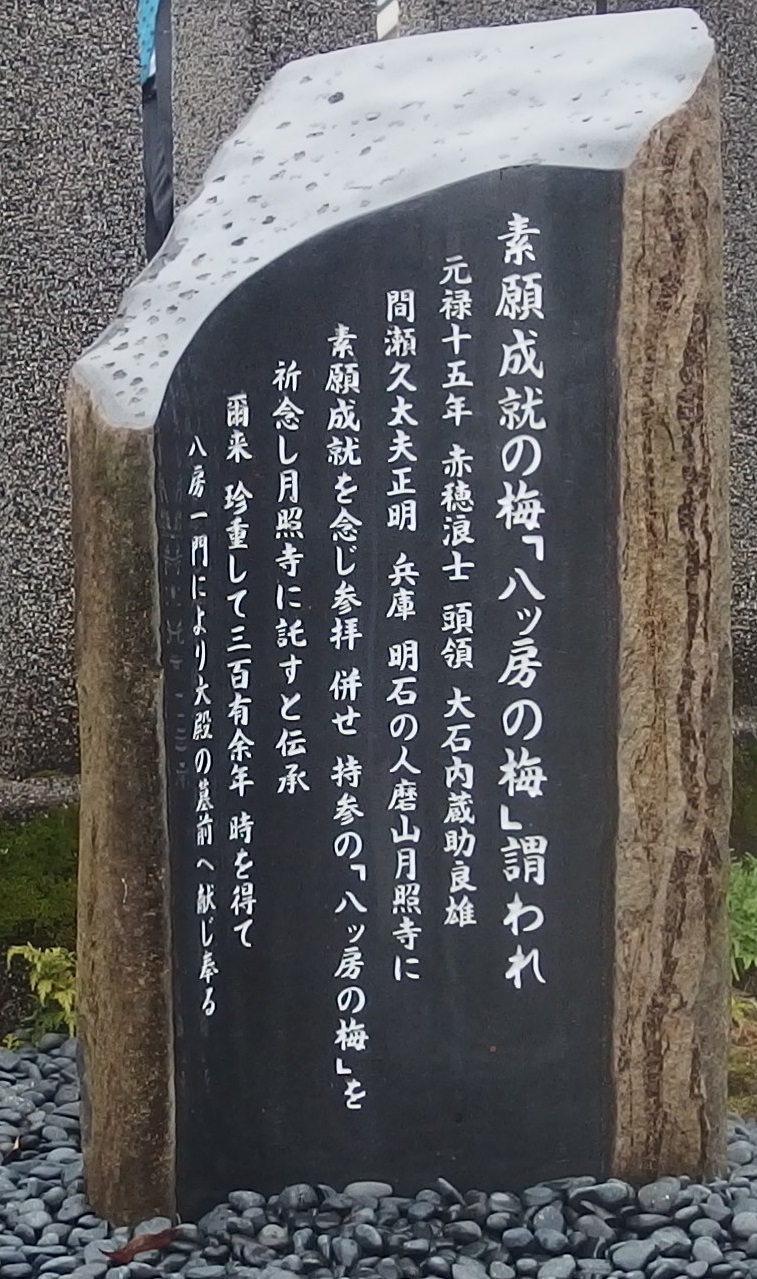 素願成就の梅「八ッ房の梅」謂われ
元禄十五年 赤穂浪士 頭領 大石内蔵助良雄
間瀬久太夫正明 兵庫 明石の人磨山月照寺に
素願成就を念じ参拝 併せ 持参の「八ッ房の梅」を
祈念し月照寺に託すと伝承
爾来 珍重して三百有余年 時を得て
八房一門により大殿の墓前へ献じ奉る